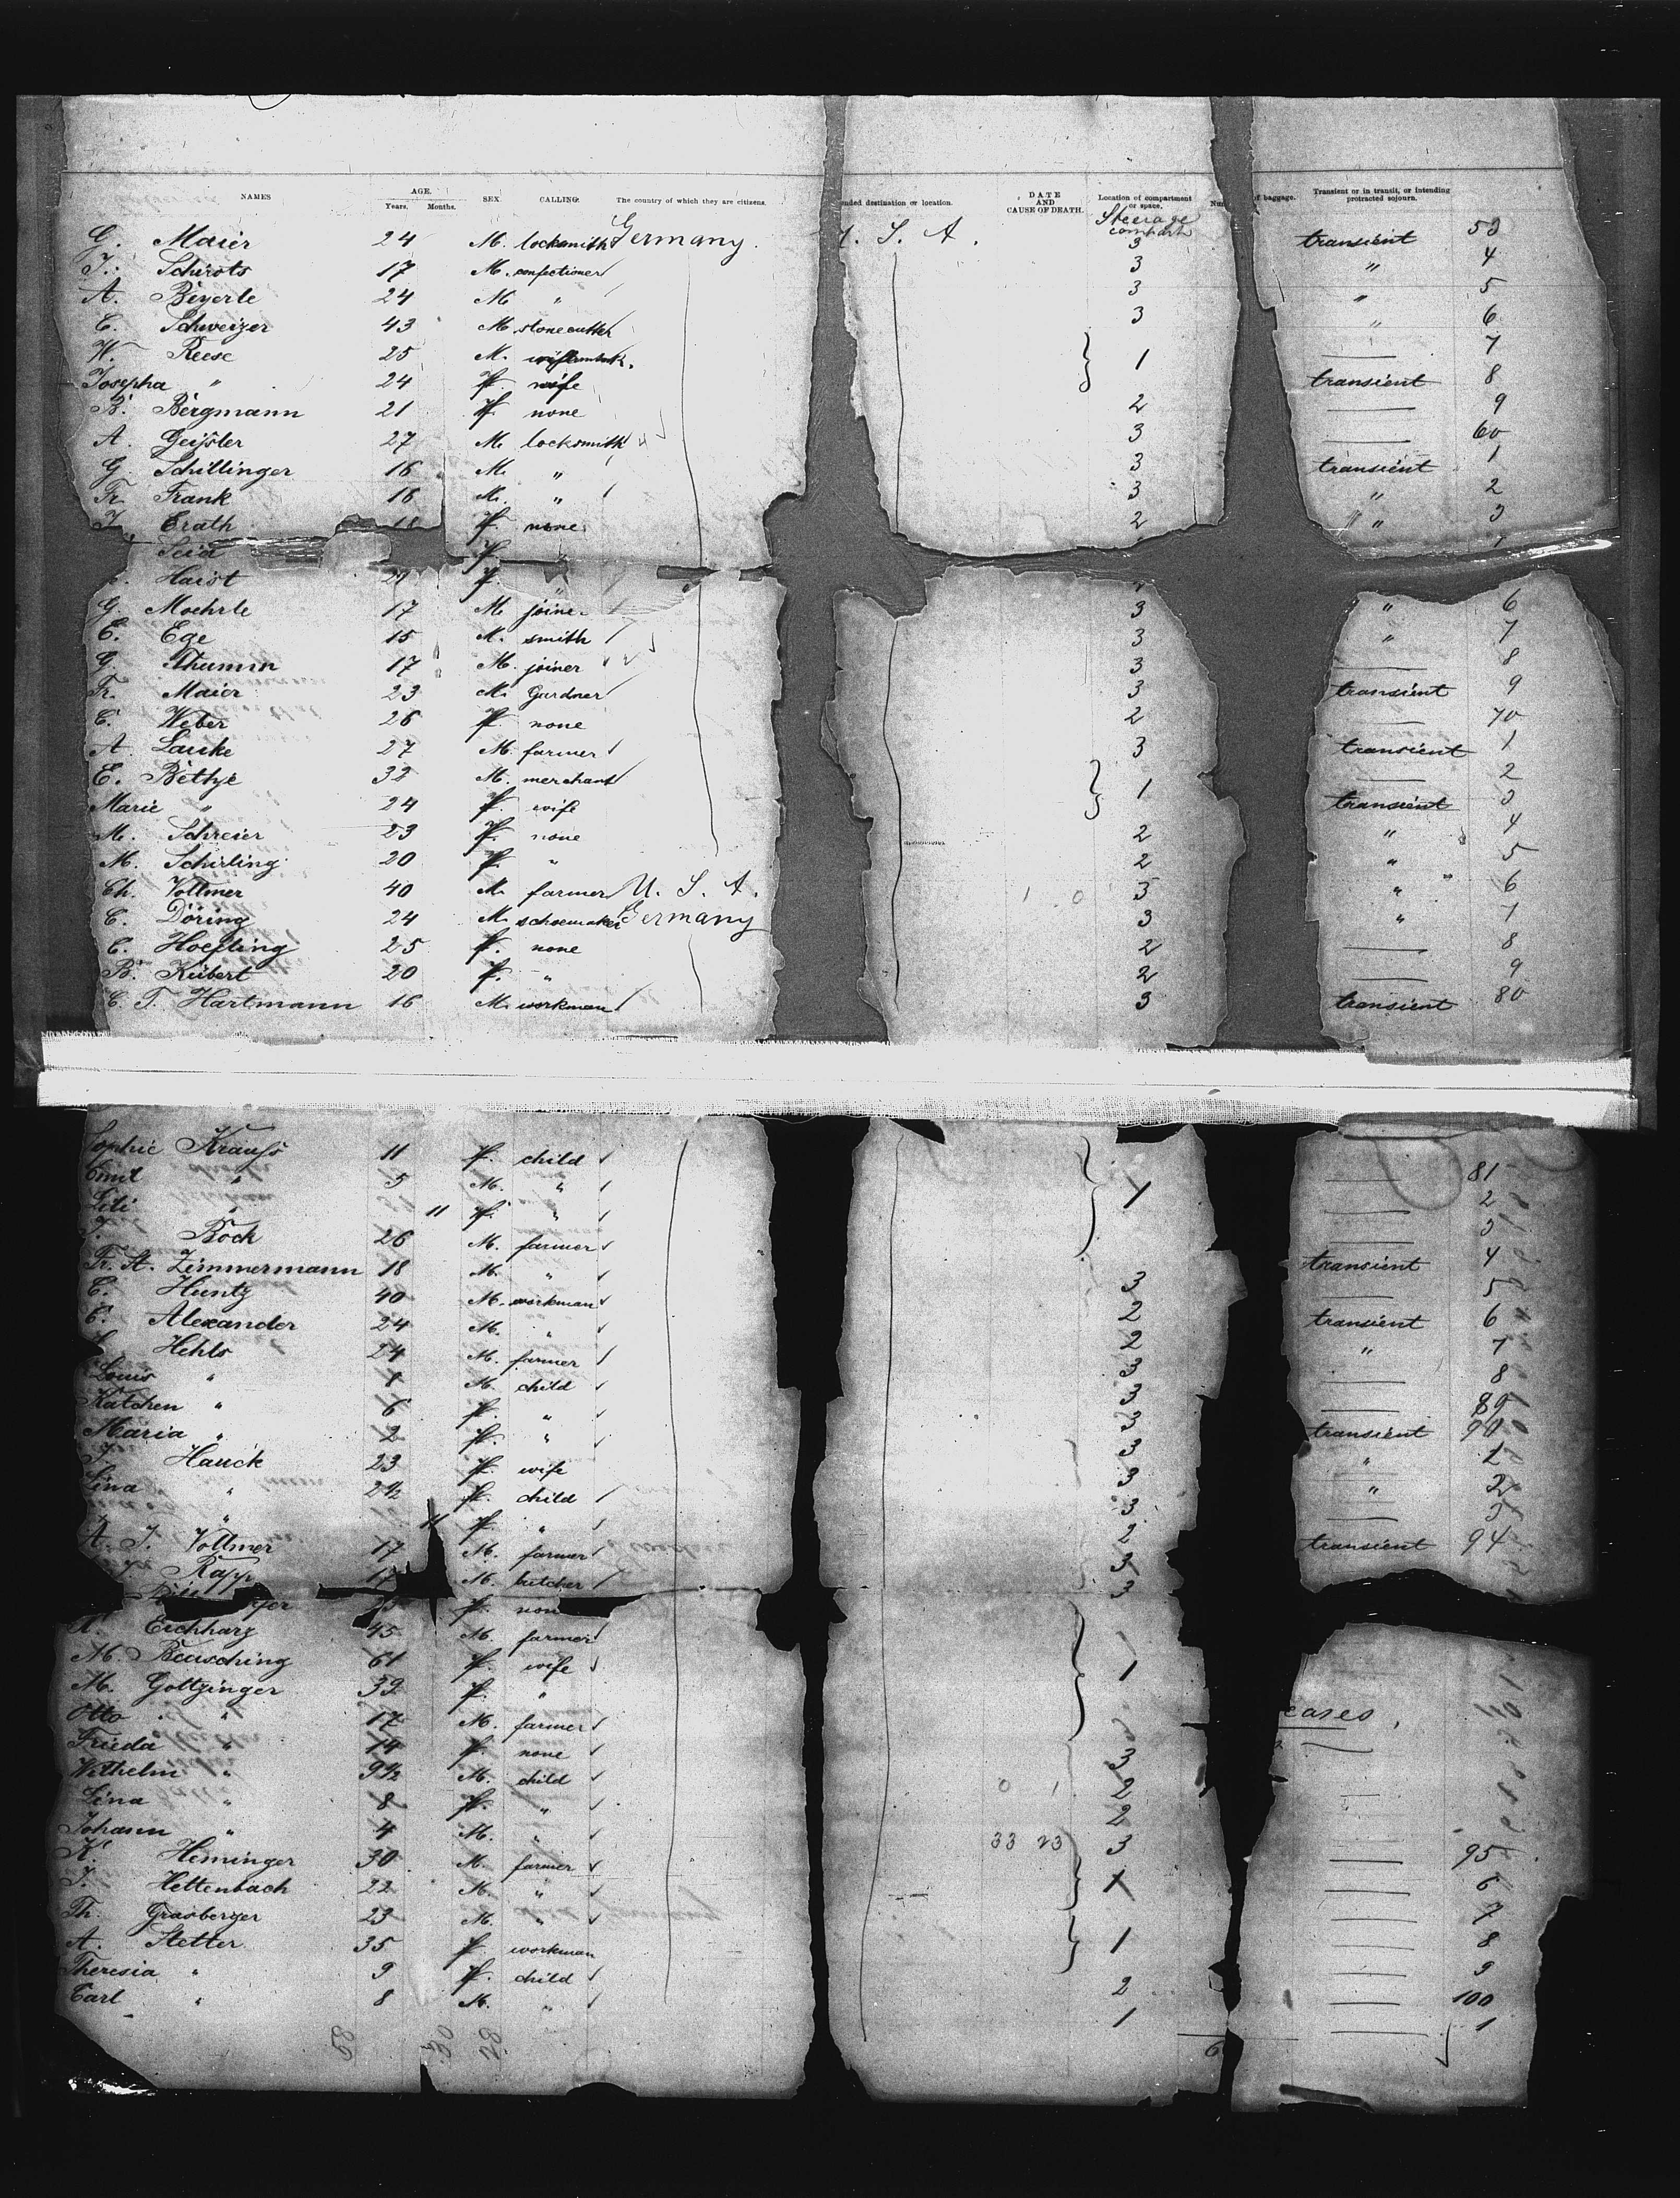 NAMES AGE. Years. Months. SEX. CALLING. The country of which they are citizens. nded destination or location. DATE AND CAUSE OF DEATH. Location of compartment or space. Nu f baggage. Transient or in transit, or intending protracted sojourn.
G. Maier 24 M. locksmith Germany. S. A. Steerage compart 3 transient 53
Schrots 17 M. confectioner 3 " 4
A. Beyerle 24 M " 3 " 5
C. Schweizer 43 M stonecutter 3 " 6
W. Reese 25 M. 1 — 7
Josepha " 24 F. wife transient 8
B. Bergmann 21 F. none 2 — 9
A. Geissler 27 M. locksmith 3 — 60
G. Schillinger 16 M. " 3 transient 1
Fr. Frank 16 M. " 3 " 2
Erath 18 F. none 2 " 3
F. "
Haist 27 F. "
G. Moehrle 17 M. joiner 3 " 6
C. Ege 15 M. smith 3 " 7
G. Thumm 17 M. joiner 3 — 8
Fr. Maier 23 M. Gardner 3 transient 9
C. Weber 26 F. none 2 — 70
A. Lauke 27 M. farmer 3 transient 1
E. Bethje 32 M. merchant 1 — 2
Marie " 24 F. wife transient 3
M. Schreier 23 F. none 2 " 4
M. Schirling 20 F. " 2 " 5
Ch. Vollmer 40 M farmer U. S. A. 1 0 3 " 6
C. Döring 24 M schoemaker Germany 3 " 7
C. Hoefling 25 F. none 2 — 8
B. Kübert 20 F. " 2 — 9
C. T. Hartmann 16 M. workman 3 transient 80
Sophie Krauss 11 F. child — 81
Emil " 5 M. " 1 — 2
Lili " 11 F. " — 3
Bock 26 M. farmer transient 4
Fr. St. Zimmermann 18 M. " 3 — 5
C. Huntz 40 M. workman 2 transient 6
C. Alexander 24 M. " 2 " 7
Hehls 24 M. farmer 3 — 8
Louis " 8 M. child 3 — 89
Katchen " 6 F. " 3 transient 90
Maria " 2 F. " 3 " 1
Hauck 23 F. wife 3 " 2
Lina " 2½ F. child 3 — 3
" 11 F. " 2 transient 94
A. J. Vollmer 17 M. farmer 3
Rapp 17 M. butcher 3
ger F. non
Eichharz 45 M. farmer 1
M. Beusching 61 F. wife 1
M. Goltzinger 39 F. "
Otto " 17 M. farmer eases,
Frieda " 14 F. none 3 —
Wilhelm " 9½ M. child 0 1 2 —
Lina " 8 F. " 2 —
Johann " 4 M. " 33 23 3 — 95
K. Heminger 30 M. farmer 1 — 6
Hettenbach 22 M. " — 7
Th. Grasberger 23 M. " 1 — 8
A. Stetter 35 F. workman — 9
Theresia " 9 F. child 2 — 100
Carl " 8 M. " 1 — 1
6